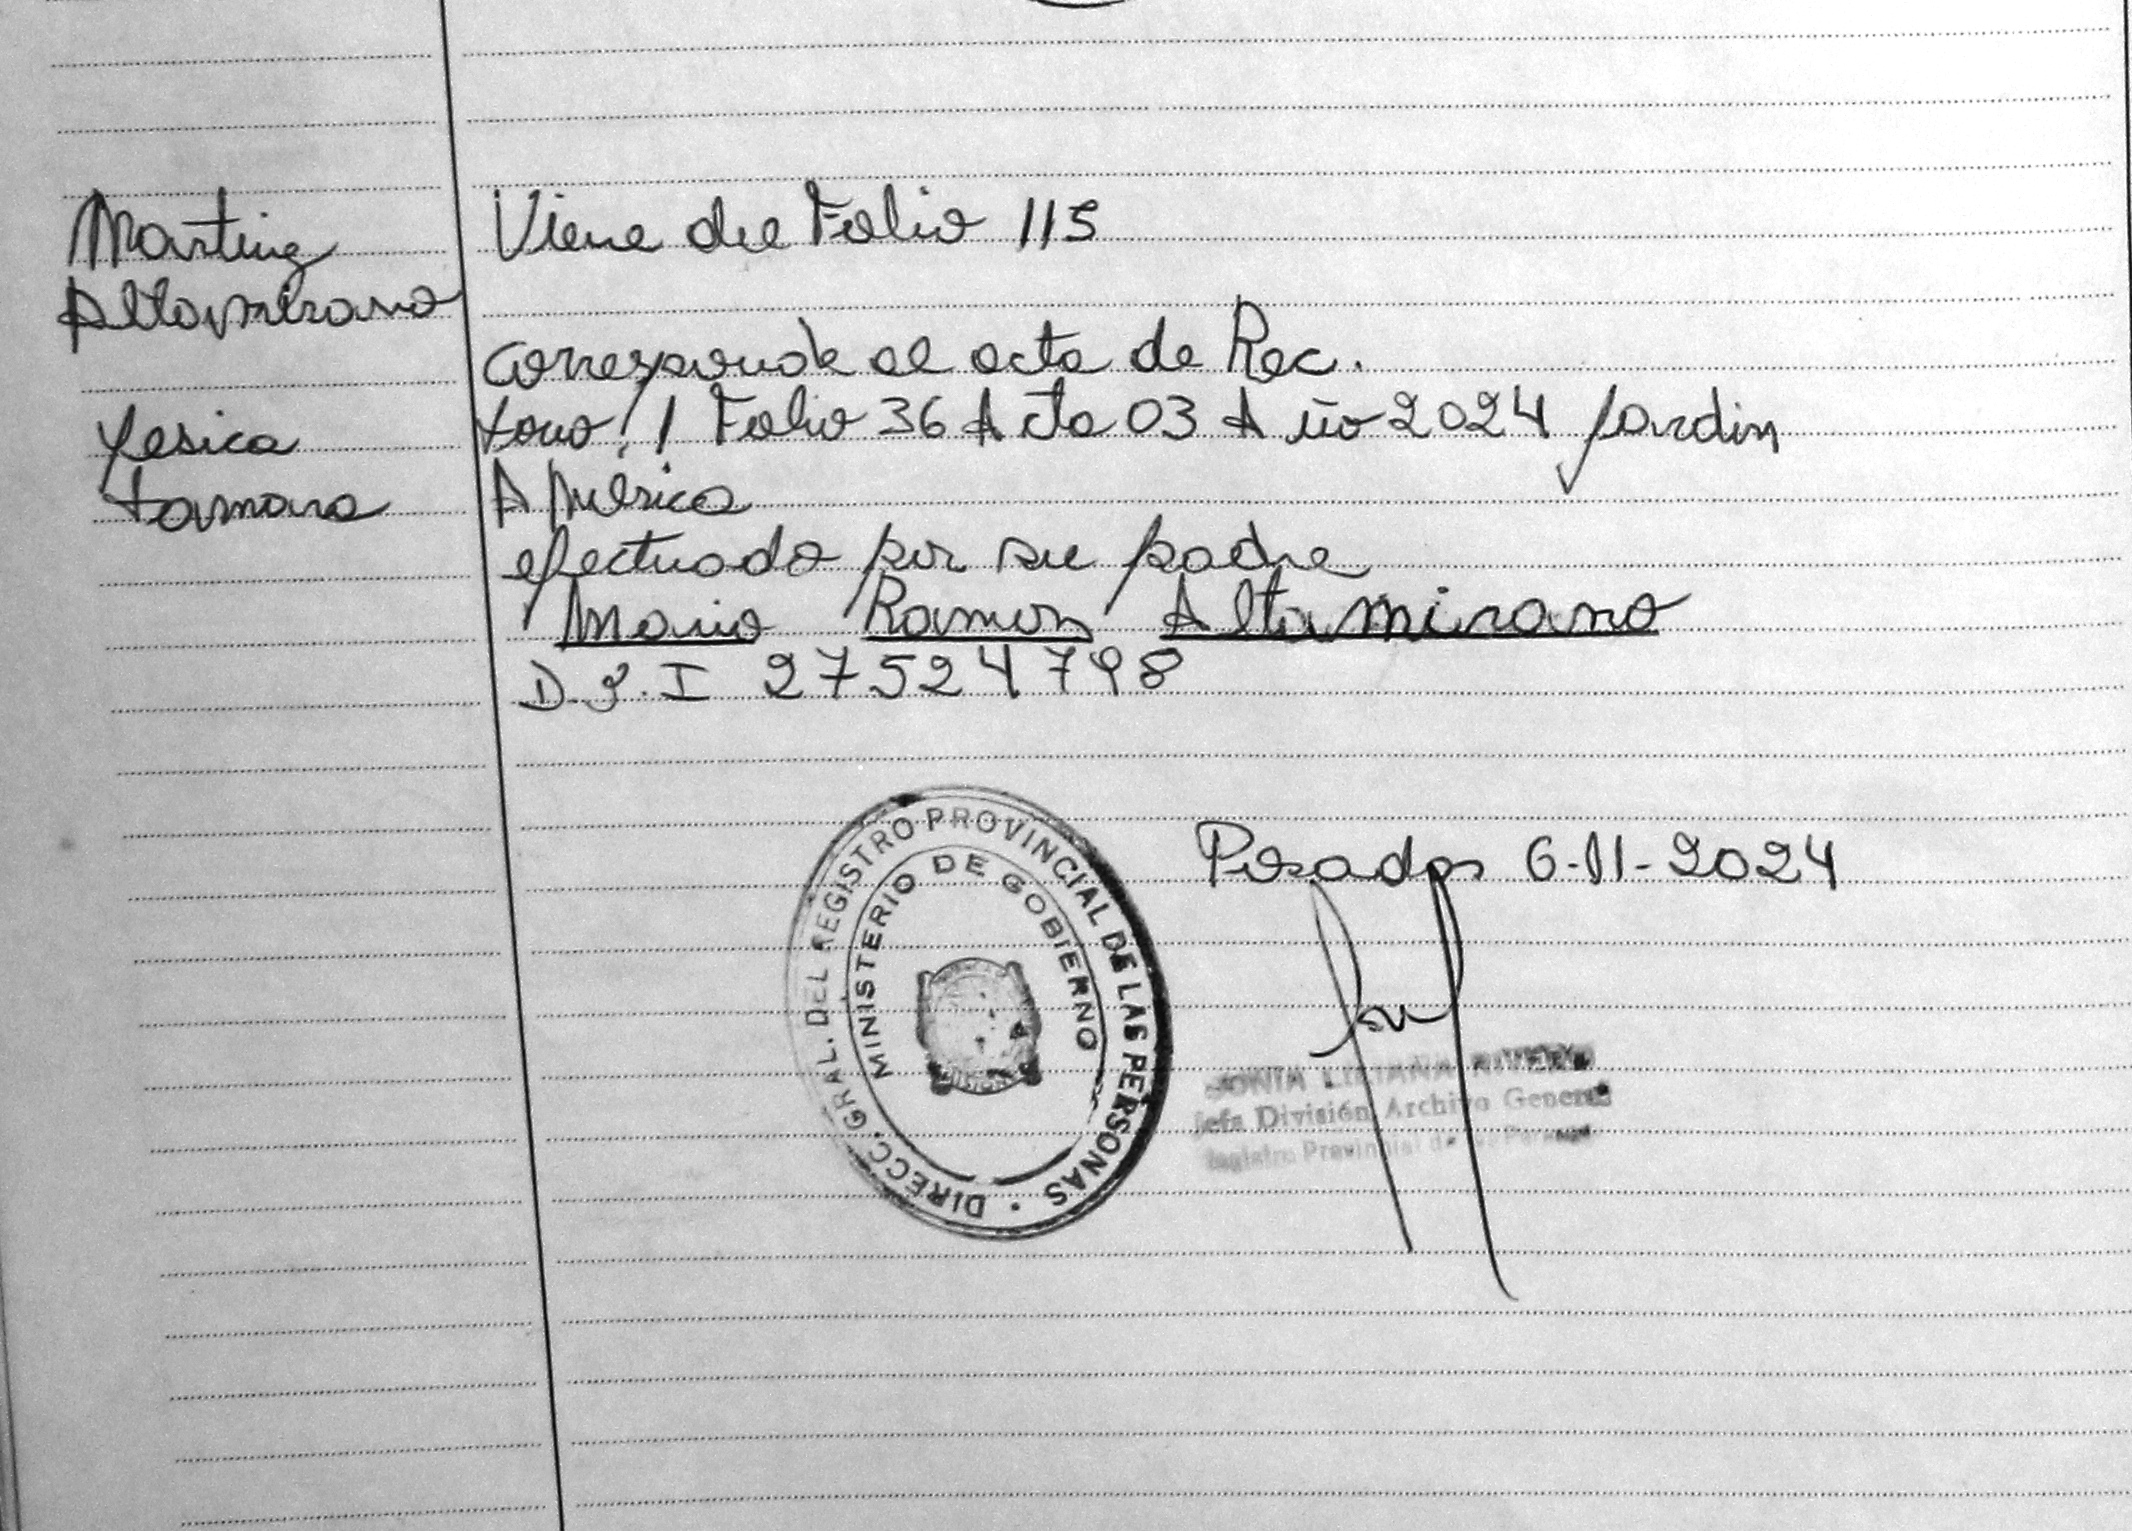 Martinz
Altamirano
Yesica
Tamara
Viene del Folio 115
Corresponde al acta de Rec.
Tomo: 1 Folio 36 Acta 03 Año 2024 Jardin
América
efectuado por su padre
Mario Ramon Altamirano
D.N.I 27524798
Posadas 6-11-2024
DIRECC. GRAL. DEL REGISTRO PROVINCIAL DE LAS PERSONAS
MINISTERIO DE GOBIERNO
SONIA LILIANA
Jefa División Archivo General
Registro Provincial de las Personas